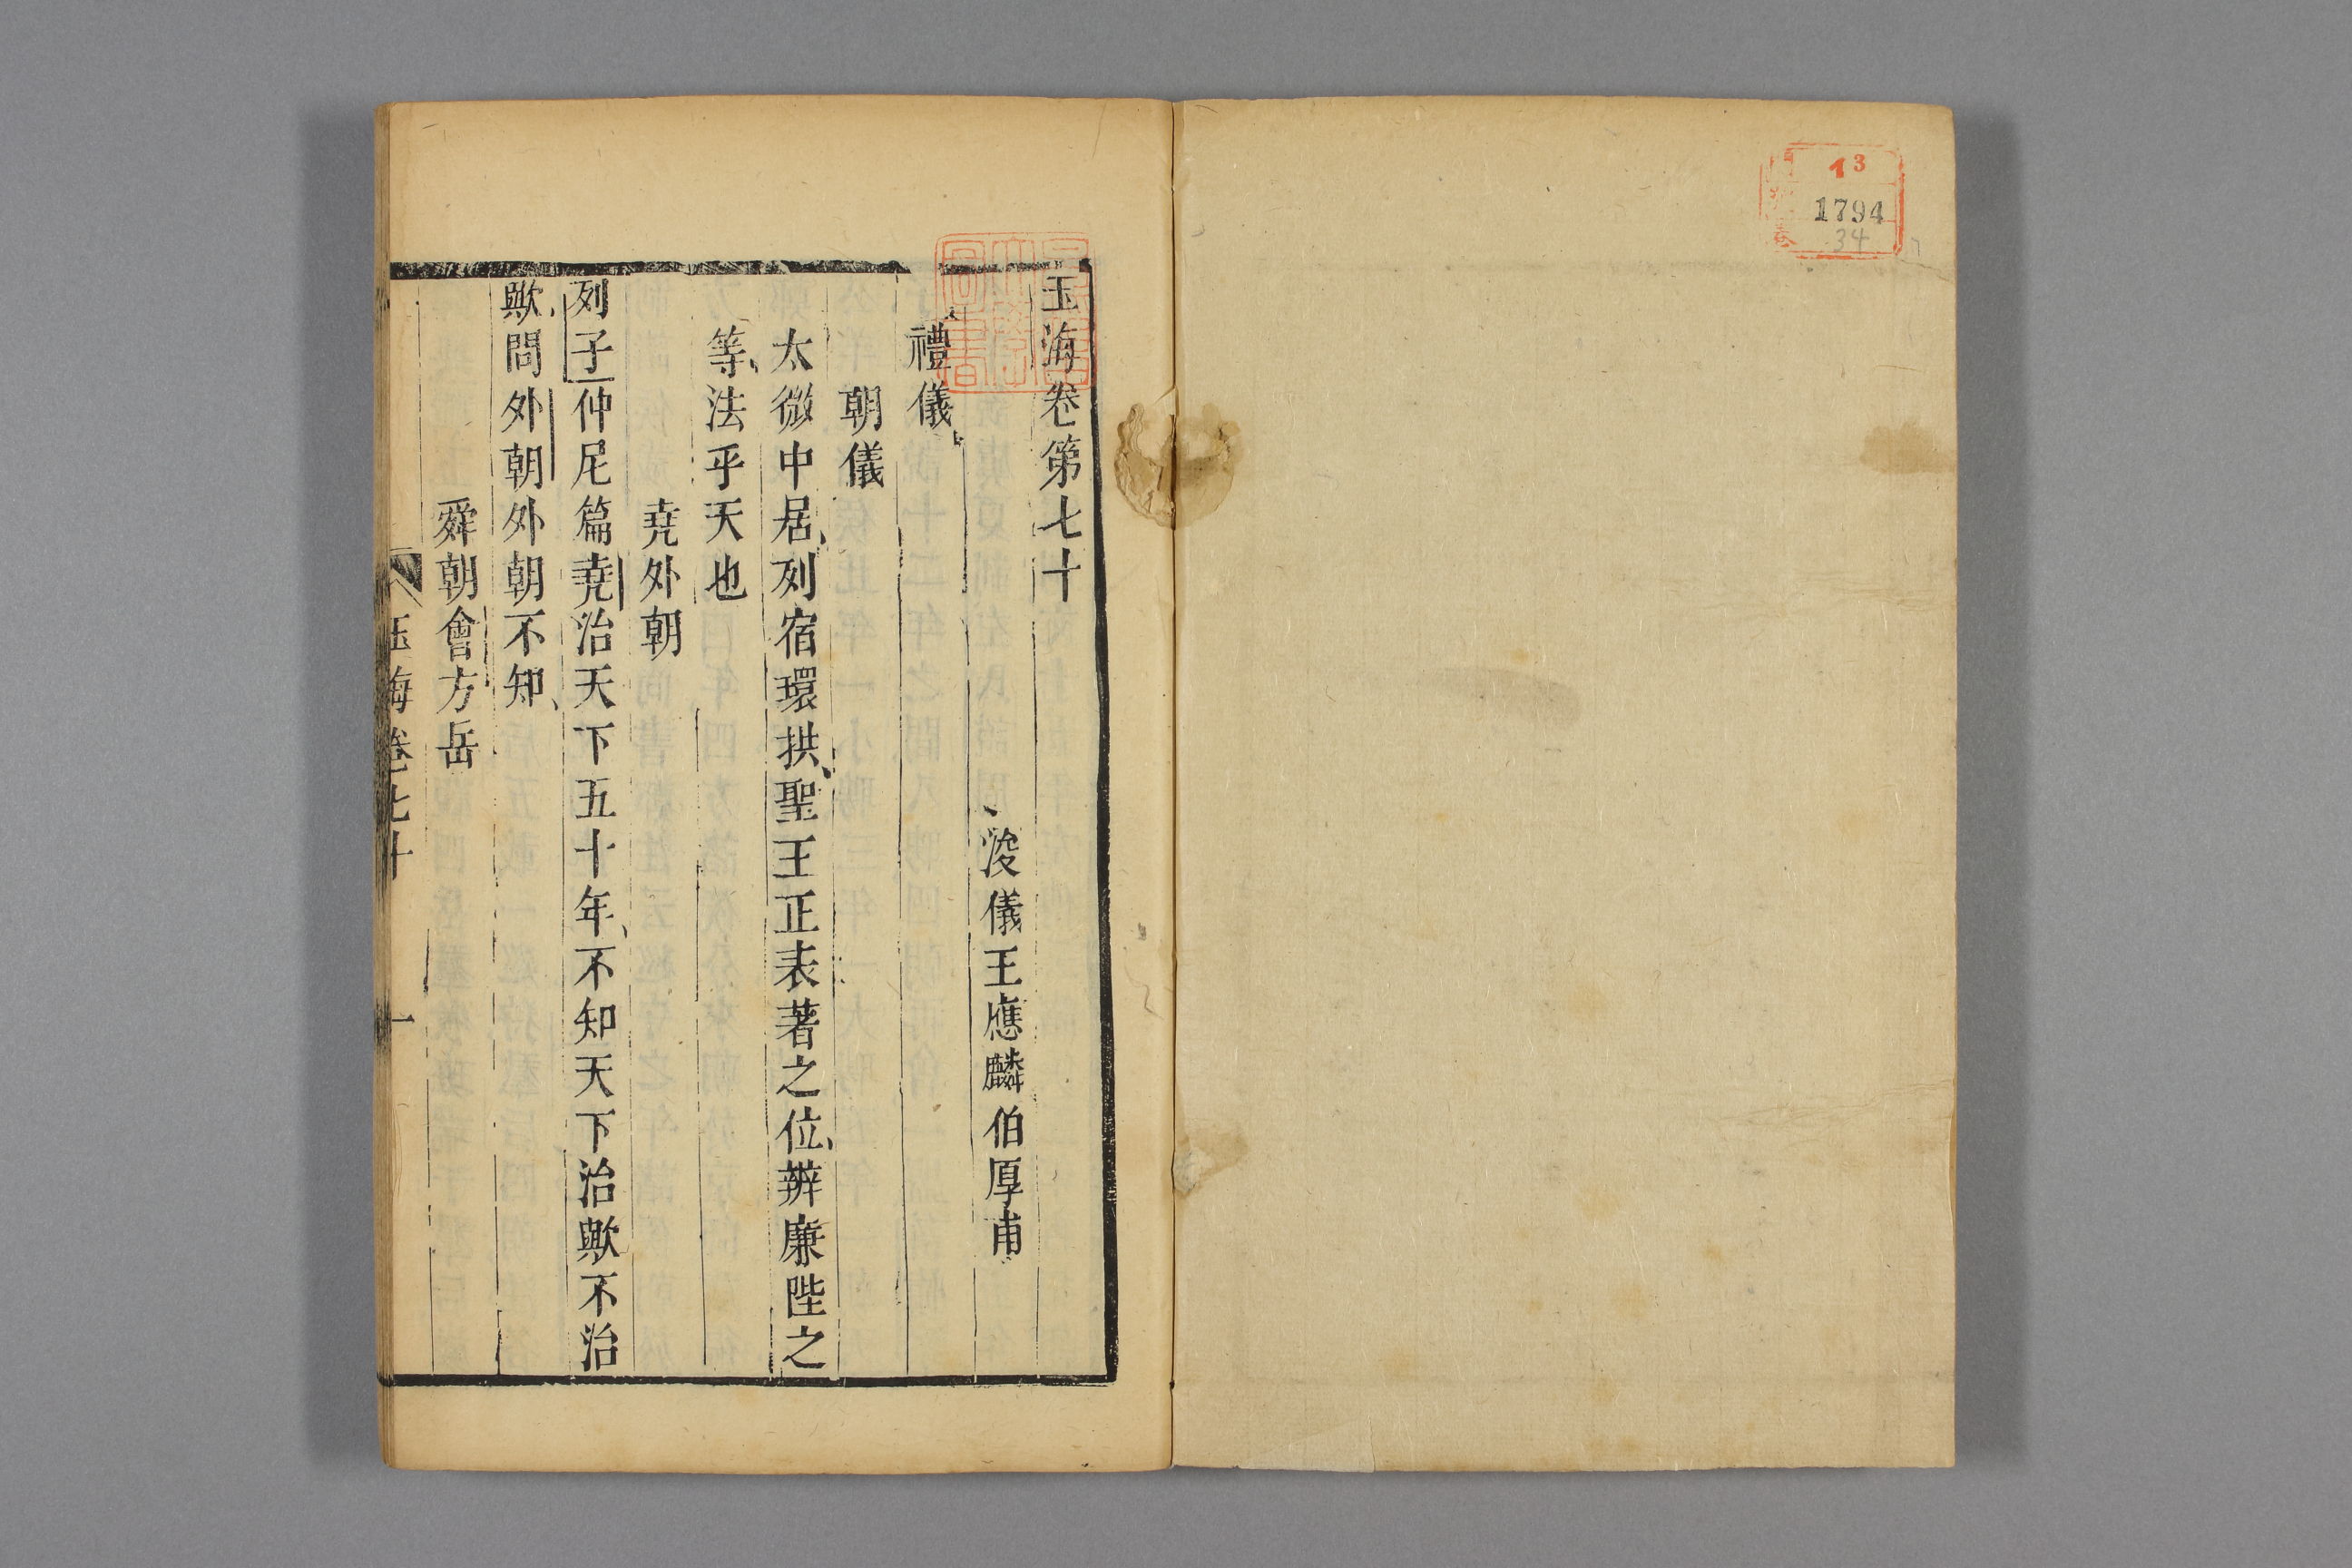 13
1794
34
玉海卷第七十
浚儀王應麟伯厚甫
禮儀
朝儀
太微中居列宿環拱聖王正表著之位辨廉陛之
等法乎天也
堯外朝
列子仲尼篇堯治天下五十年不知天下治歟不治
歟問外朝外朝不知
舜朝會方岳
玉海卷七十
一